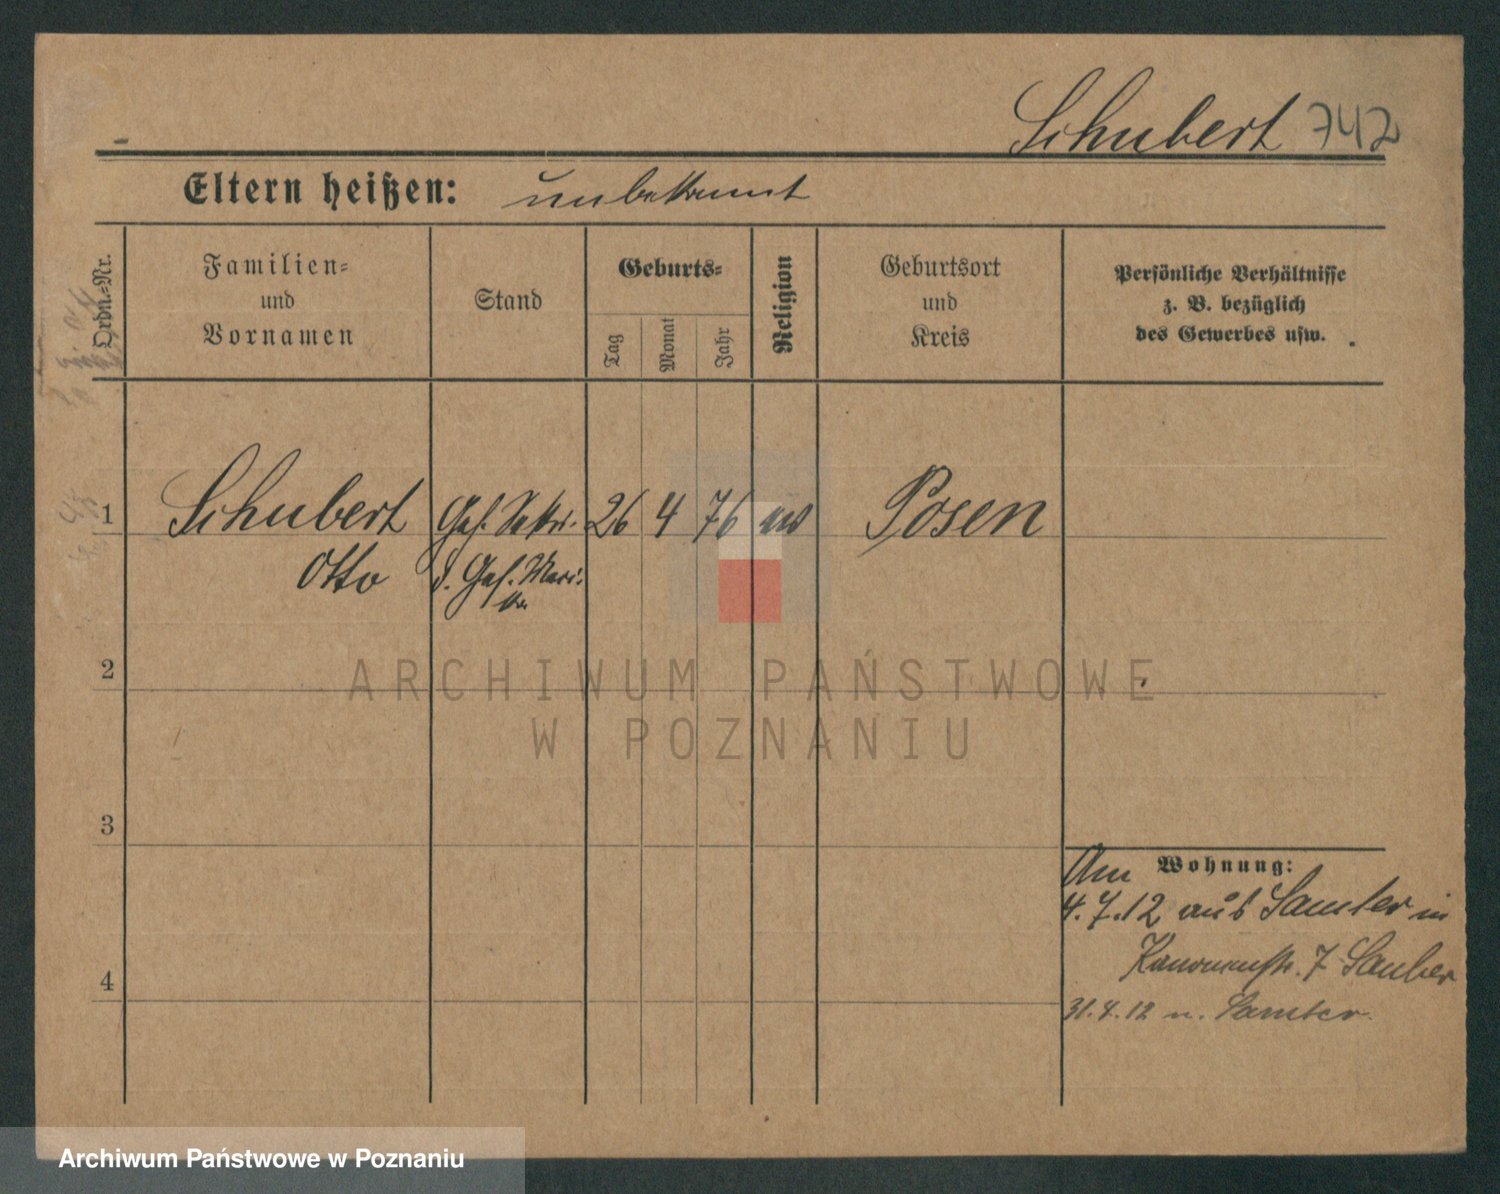 Schubert 742
Eltern heißen: unbekannt
Ordn.-Nr.
Familien-
und
Vornamen
Stand
Geburts-
Tag
Monat
Jahr
Religion
Geburtsort
und
Kreis
Persönliche Verhältnisse
z. B. bezüglich
des Gewerbes usw.
1 Schubert 26 4 76 Posen
Otto
2
3
4
Wohnung:
Am
4.7.12 aus Samter in
Kanonenstr. 7 Sauber
31.7.12 n. Samter
ARCHIWUM PAŃSTWOWE
W POZNANIU
Archiwum Państwowe w Poznaniu